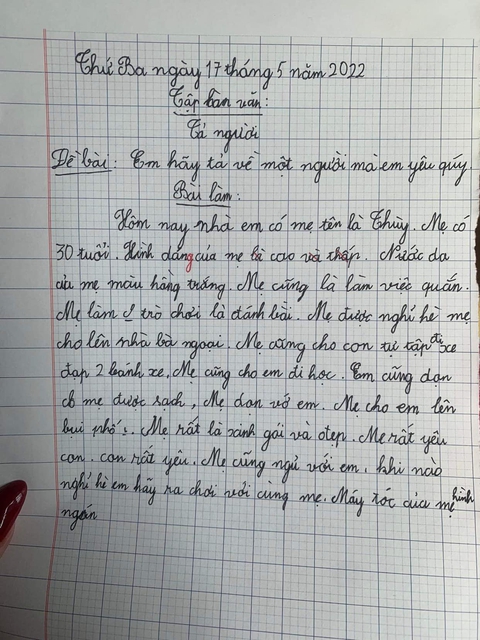 Thứ Ba ngày 17 tháng 5 năm 2022
Tập làm văn:
Tả người
Đề bài: Em hãy tả về một người mà em yêu quý
Bài làm:
Hôm nay nhà em có mẹ tên là Thùy. Mẹ có
30 tuổi. Hình dáng của mẹ là cao và thấp. Nước da
của mẹ màu hồng trắng. Mẹ cũng là làm việc quần.
Mẹ làm trò chơi là đánh bài. Mẹ được nghỉ hè mẹ
cho lên nhà bà ngoại. Mẹ cũng cho con tự tập đi xe
đạp 2 bánh xe, Mẹ cũng cho em đi học. Em cũng dọn
mẹ được sạch, Mẹ dọn vớ em. Mẹ cho em lên
phố. Mẹ rất là xinh gái và đẹp. Mẹ rất yêu
con. con rất yêu. Mẹ cũng ngủ với em. khi nào
nghỉ hè em hãy ra chơi với cùng mẹ. Máy tóc của mẹ hình
ngắn